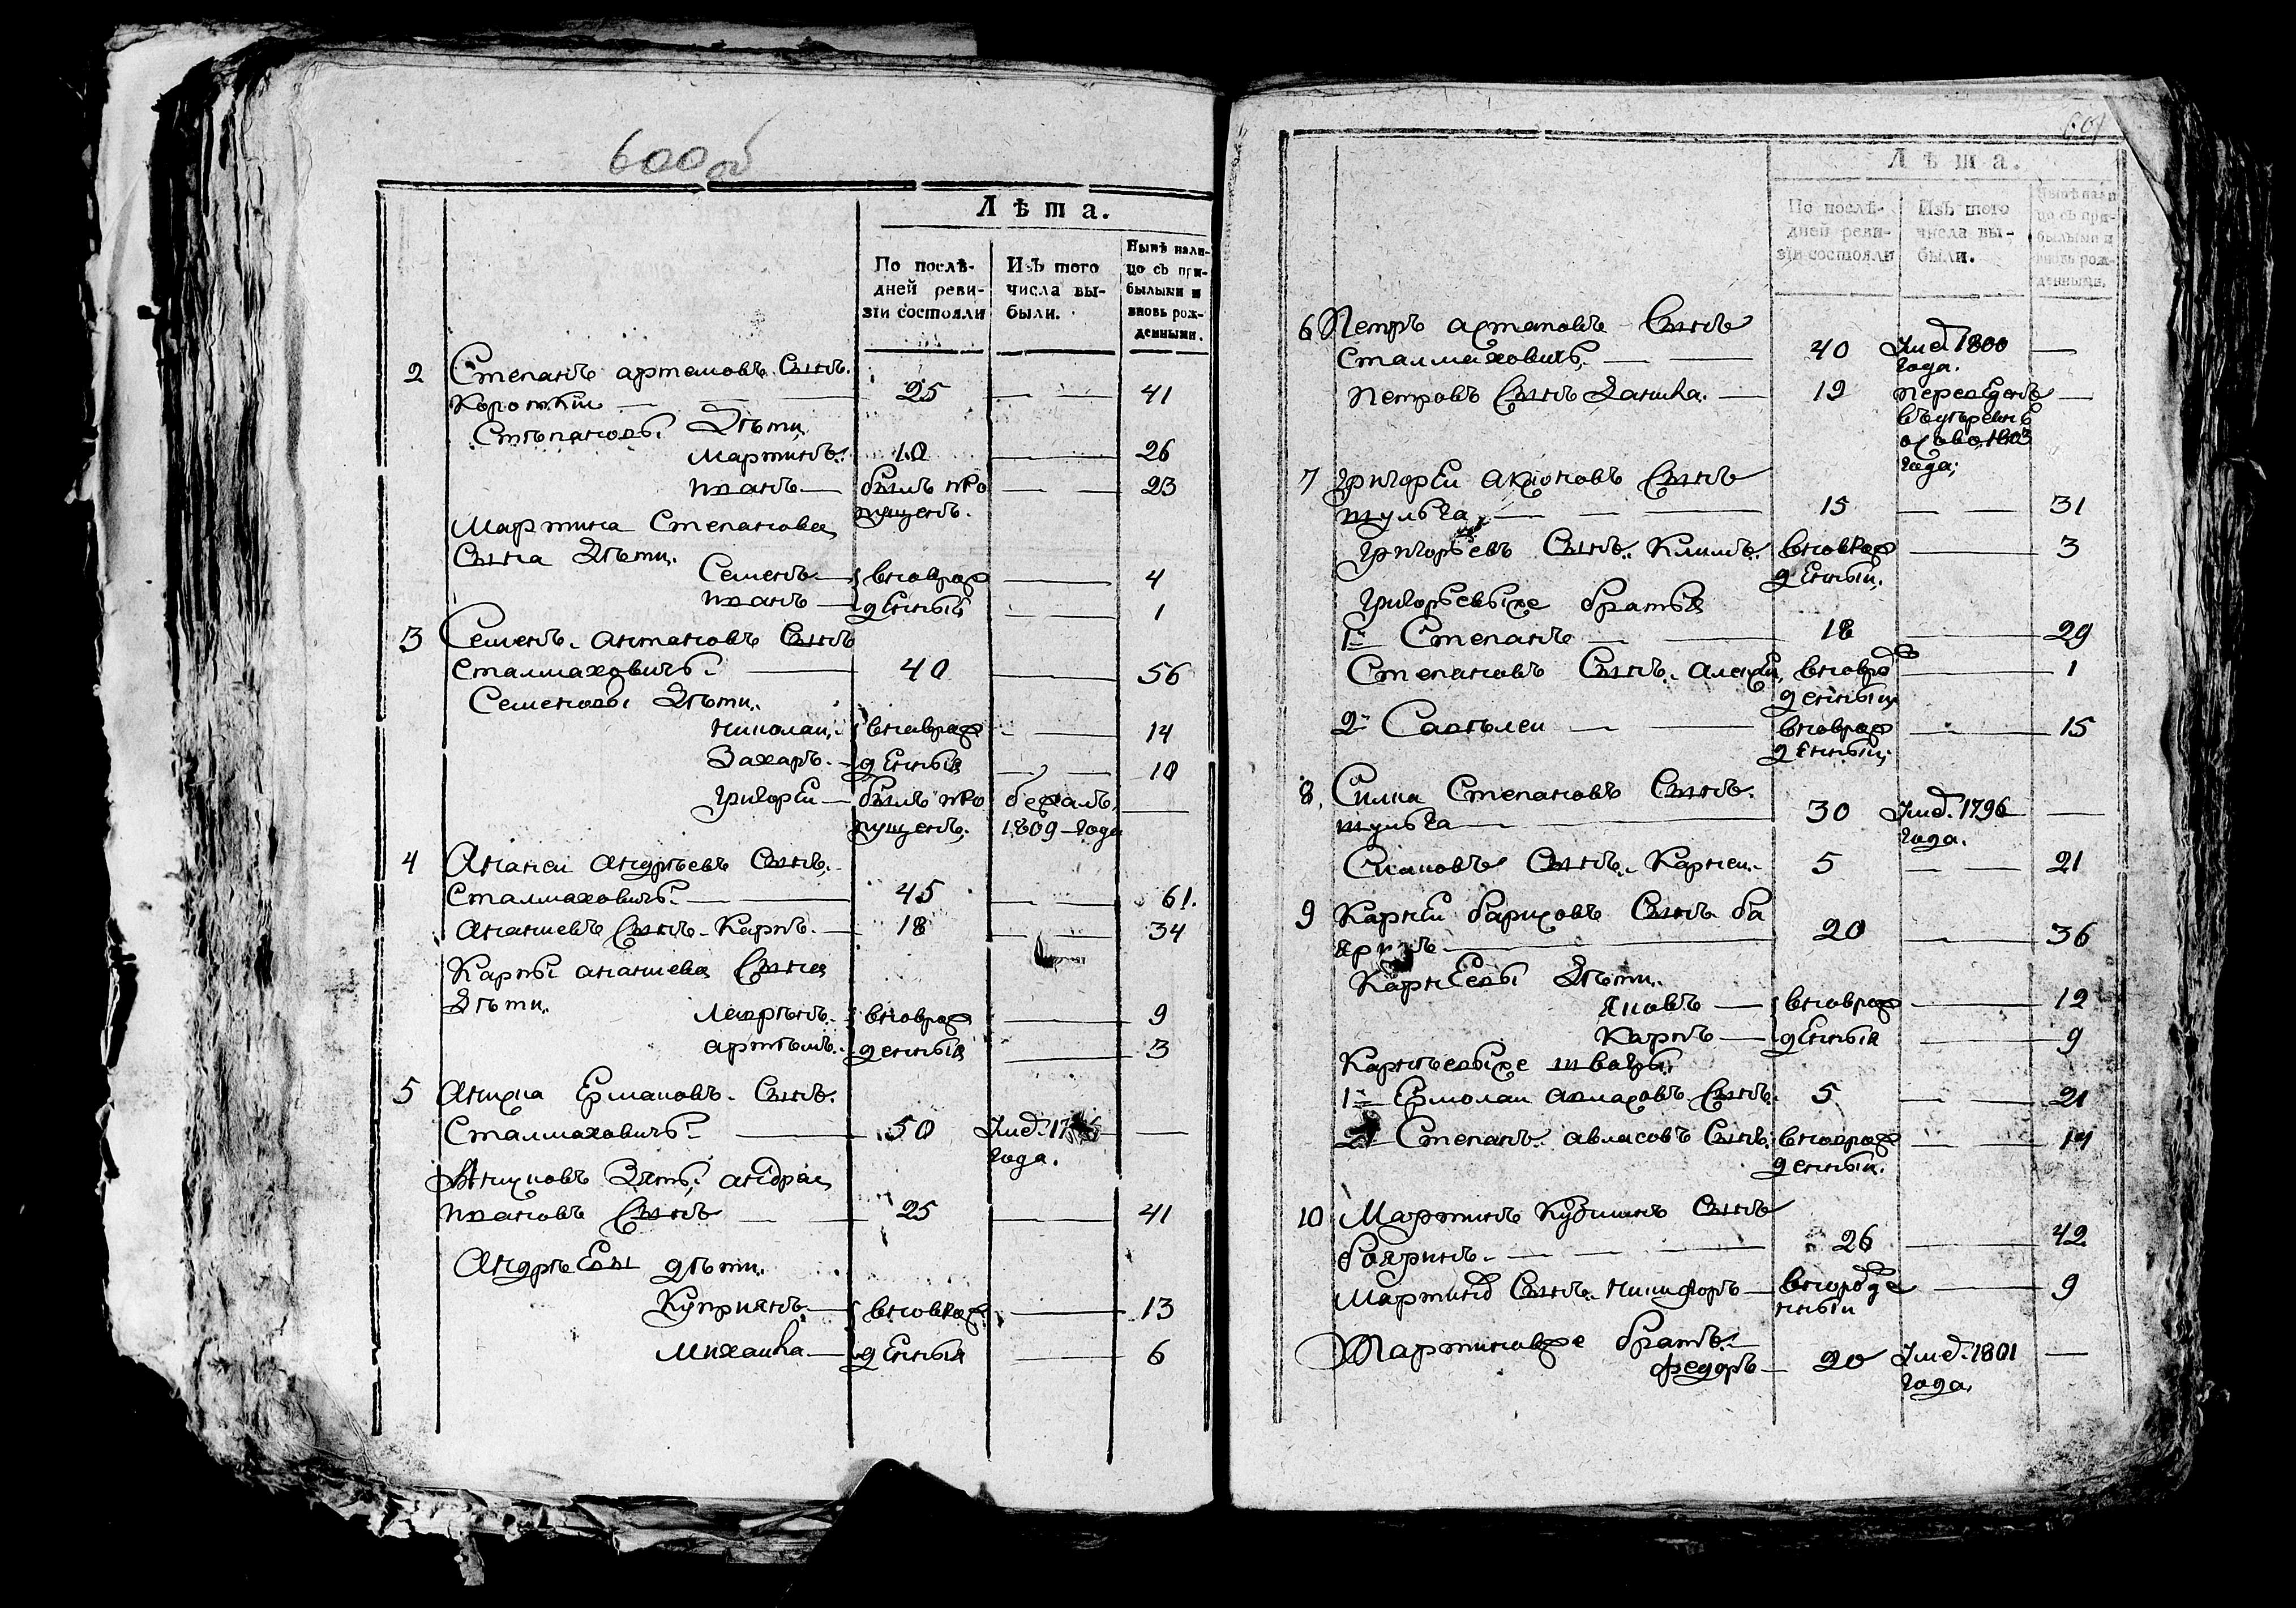 600 об
Лѣта.
По послѣ-
дней реви-
зіи состояли
Изъ того
числа вы-
были.
Нынѣ нали-
цо съ при-
былыми и
вновь рож-
денными.
2 Степанъ артемовъ Сынъ
Короткии — 25 — — 41
Степановы Дѣти
Мартинъ 10 — 26
иванъ — былъ про — — 23
пущенъ.
Мартина Степанова
Сына Дѣти
Семенъ — вновьрож — 4
иванъ — денныя — — 1
3 Семенъ антановъ Сынъ
Сталмаховичъ — 40 — 56
Семеновы Дѣти
николаи вновьрож — — 14
Захаръ денныя — — 10
григореи — былъ про бежалъ —
пущенъ. 1809 года
4 Ананеи андрѣевъ Сынъ
Сталмаховичъ — 45 — — 61.
Ананиевъ Сынъ Карпъ — 18 — — 34
Карпы ананиева Сына
Дѣти
Лаврѣнъ вновьрож — 9
артѣмъ денныя — 3
5 Ермаковъ Сынъ
Сталмаховичъ — 50 Умер. —
года.
Зять андреи
ивановъ Сынъ — — 25 — 41
Андрѣевы дѣти
Куприянъ — вновьрож — 13
Михаила — денныя — 6
601
Лѣта.
По послѣ-
дней реви-
зіи состояли
Изъ того
числа вы-
были.
Нынѣ нали-
цо съ при-
былыми и
вновь рож-
денными.
6 Петръ Сынъ
Сталмаховичъ — — 40 Умер. 1800 —
года.
Петровъ Сынъ Данила — 19 переведенъ —
1803
года;
7 григореи Сынъ
шульга — — — 15 — — 31
григорьевъ Сынъ Климъ вновьрож — 3
денныи.
григорьевыже братья
1й Степанъ — — 18 — 29
Степановъ Сынъ алексеи вновьрож — 1
денныи
2й Савѣлеи — — вновьрож — — 15
денныи;
8 Сильа Степановъ Сынъ
шульга — 30 Умер. 1796 —
года.
Силиновъ Сынъ Карнеи 5 — — 21
9 Карнеи Сынъ ба
яринъ — 20 — 36
Карнеевы Дѣти
Яковъ — вновьрож — 12
Карпъ — денныя — 9
Карнѣевыже швагры
1й Ермолаи Сынъ 5 — — 21
2й Степанъ авласовъ Сынъ вновьрож — 14
денныи.
10 Мартинъ Кузминъ Сынъ
бояринъ — — — 26 — 42
Мартинов Сынъ никифоръ — вновьрожде — 9
нныи
Мартиновже братъ
федоръ — 20 Умер. 1801 —
года.